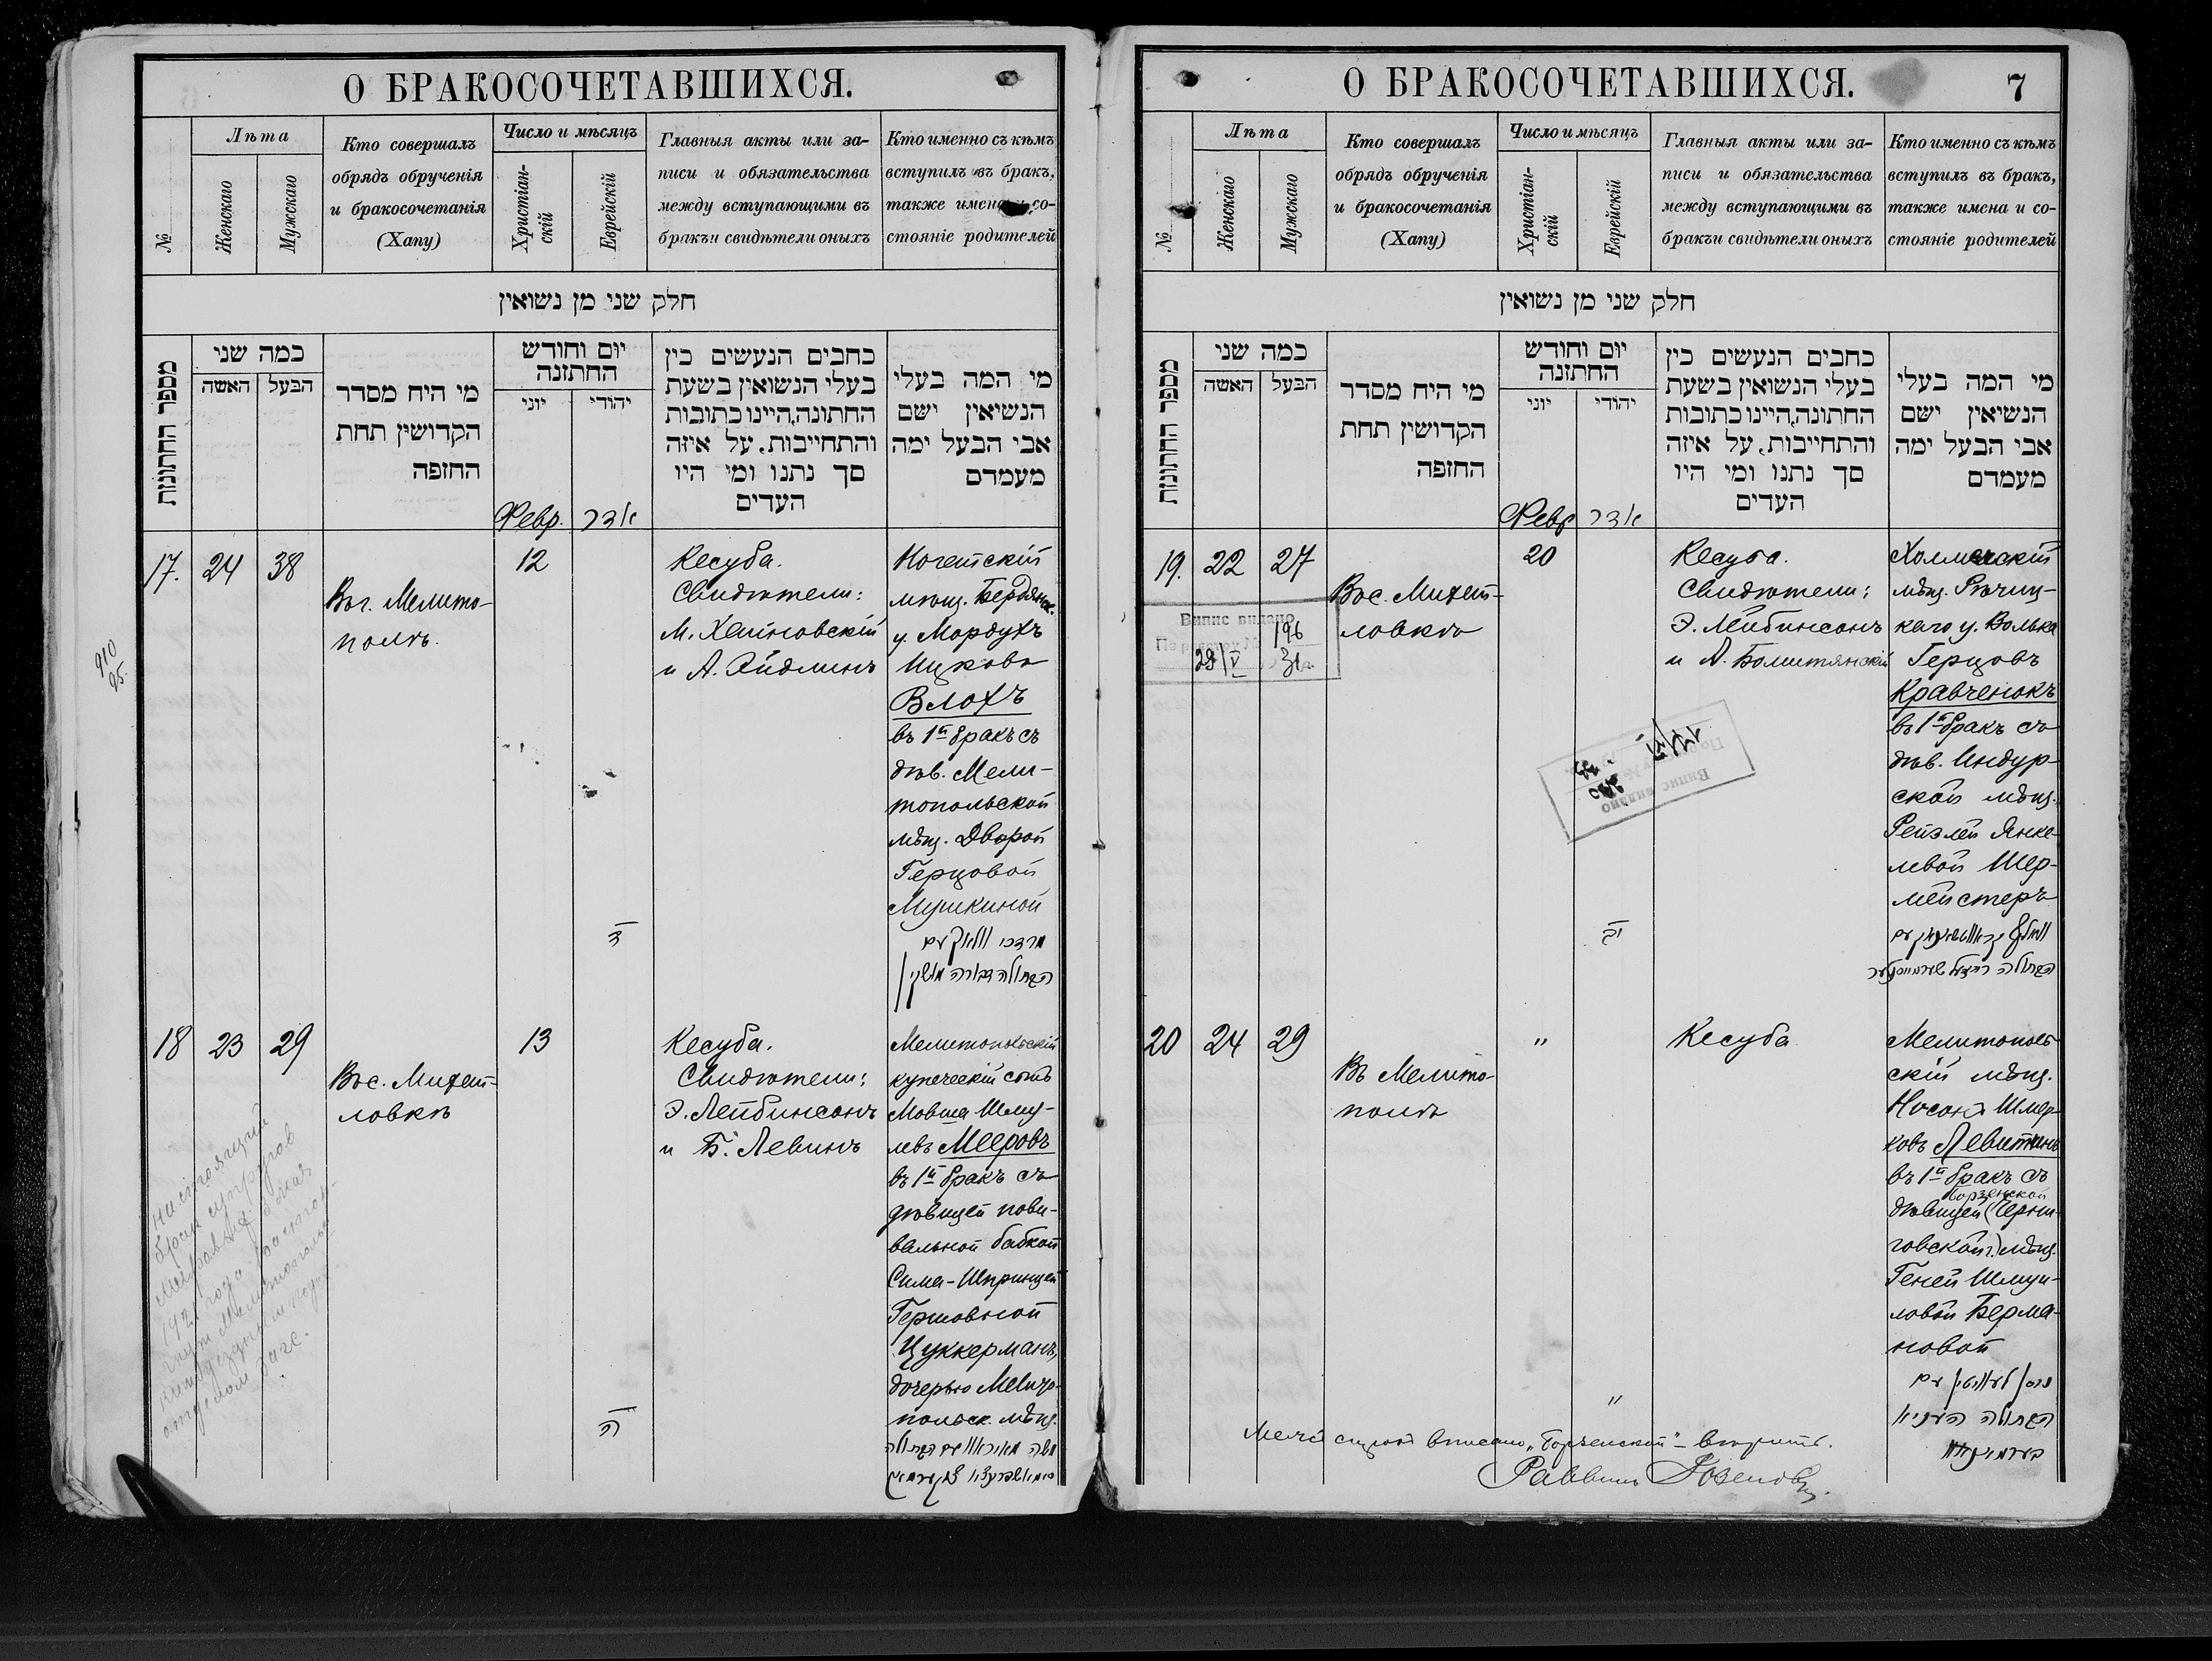 О БРАКОСОЧЕТАВШИХСЯ.
№
Лѣта
Женскаго
Мужскаго
Кто совершалъ
обрядъ обрученія
и бракосочетанія
(Хапу)
Число и мѣсяцъ
Христіан-
скій
Еврейскій
Главныя акты или за-
писи и обязательства
между вступающими въ
бракъи свидѣтели оныхъ
Кто именно съ кѣмъ
вступилъ въ бракъ,
также имена и со-
стояніе родителей
חלק שני מן נשואין
מספר החתונות
כמה שני
האשה
הבעל
מי היח מסדר
הקדושין תחת
החופה
יום וחודש
החתונה
יוני
יהודי
Февр.
אדר
כתבים הנעשים כין
בעלי הנשואין בשעת
החתונה,היינו כתובות
והתחייבות, על איזה
סך נתנו ומי היו
העדים
מי המה בעלי
הנשיאין ישם
אבי הבעל ימה
מעמדם
17.
24
38
Въ г. Мелито-
полѣ.
12
ד
Кесуба.
Свидѣтели:
М. Хайновскій
и А. Эйдлинъ
Ногайскій
мѣщ. Бердянск.
у. Мордухъ
Ицковъ
Влохъ
въ 1й бракъ съ
дѣв. Мели-
топольской
мѣщ. Дворой
Герцовой
Мушкиной
18
23
29
Въ с. Михай-
ловкѣ
13
ה
Кесуба.
Свидѣтели:
Э. Лейбинсонъ
и Б. Левинъ
Мелитопольскій
купеческій сынъ
Мовша Шлиу-
левъ Мееровъ
въ 1й бракъ съ
дѣвицей пови-
вальной бабкой
Сима-Шпринцей
Гершовной
Цуккерманъ,
дочерью Мелито-
польск. мѣщ.
910
95.
Настоящий
брак супругов
1921 года
отделом загс.
О БРАКОСОЧЕТАВШИХСЯ.
7
№
Лѣта
Женскаго
Мужскаго
Кто совершалъ
обрядъ обрученія
и бракосочетанія
(Хапу)
Число и мѣсяцъ
Христіан-
скій
Еврейскій
Главныя акты или за-
писи и обязательства
между вступающими въ
бракъи свидѣтели оныхъ
Кто именно съ кѣмъ
вступилъ въ бракъ,
также имена и со-
стояніе родителей
חלק שני מן נשואין
מספר החתונות
כמה שני
האשה
הבעל
מי היח מסדר
הקדושין תחת
החופה
יום וחודש
החתונה
יוני
יהודי
Февр
אדר
כתבים הנעשים כין
בעלי הנשואין בשעת
החתונה,היינו כתובות
והתחייבות, על איזה
סך נתנו ומי היו
העדים
מי המה בעלי
הנשיאין ישם
אבי הבעל ימה
מעמדם
19.
22
27
Въ с. Михай-
ловкѣ
20
יב
Кесуба.
Свидѣтели:
Э. Лейбинсонъ
и А. Болштянскій
Холмечскій
мѣщ. Рѣчиц-
каго у. Волька
Герцовъ
Кравченокъ
въ 1й бракъ съ
дѣв. Индур-
ской мѣщ.
Рейзлей Янке-
левой Шер-
мейстеръ
Випис видано
196
29/V 31
Випис видано
20
24
29
Въ Мелито-
полѣ
"
"
Кесуба
Мелитополь-
скій мѣщ.
Носонъ Шмер-
ковъ Левитинъ
въ 1й бракъ съ
борзенской
дѣвицей (Черни-
говской г.) мѣщ.
Геней Шмуи-
ловой Берма-
новой
Межд строкъ вписано „Борзенской" – вѣрить.
Раввинъ